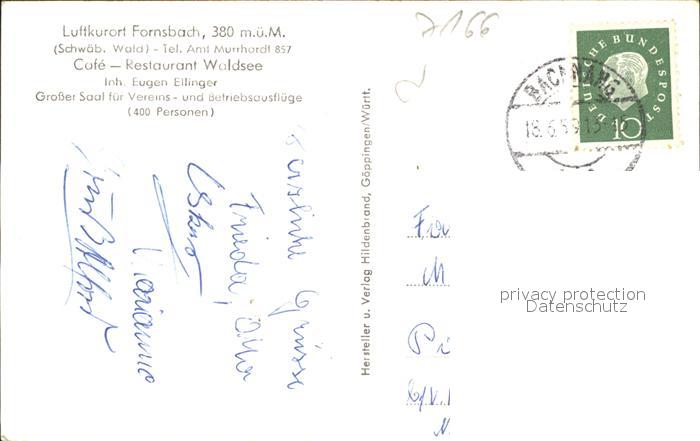 Luftkurort Fornsbach, 380 m.ü.M.
(Schwäb. Wald) - Tel. Amt Murrhardt 857
Café - Restaurant Waldsee
Inh. Eugen Ellinger
Großer Saal für Vereins- und Betriebsausflüge
(400 Personen)
Herzliche Grüsse
Frieda,
Marianne
Hersteller u. Verlag Hildenbrand, Göppingen/Württ.
7166
BACKNANG
18.6.59
DEUTSCHE BUNDESPOST
10
privacy protection
Datenschutz